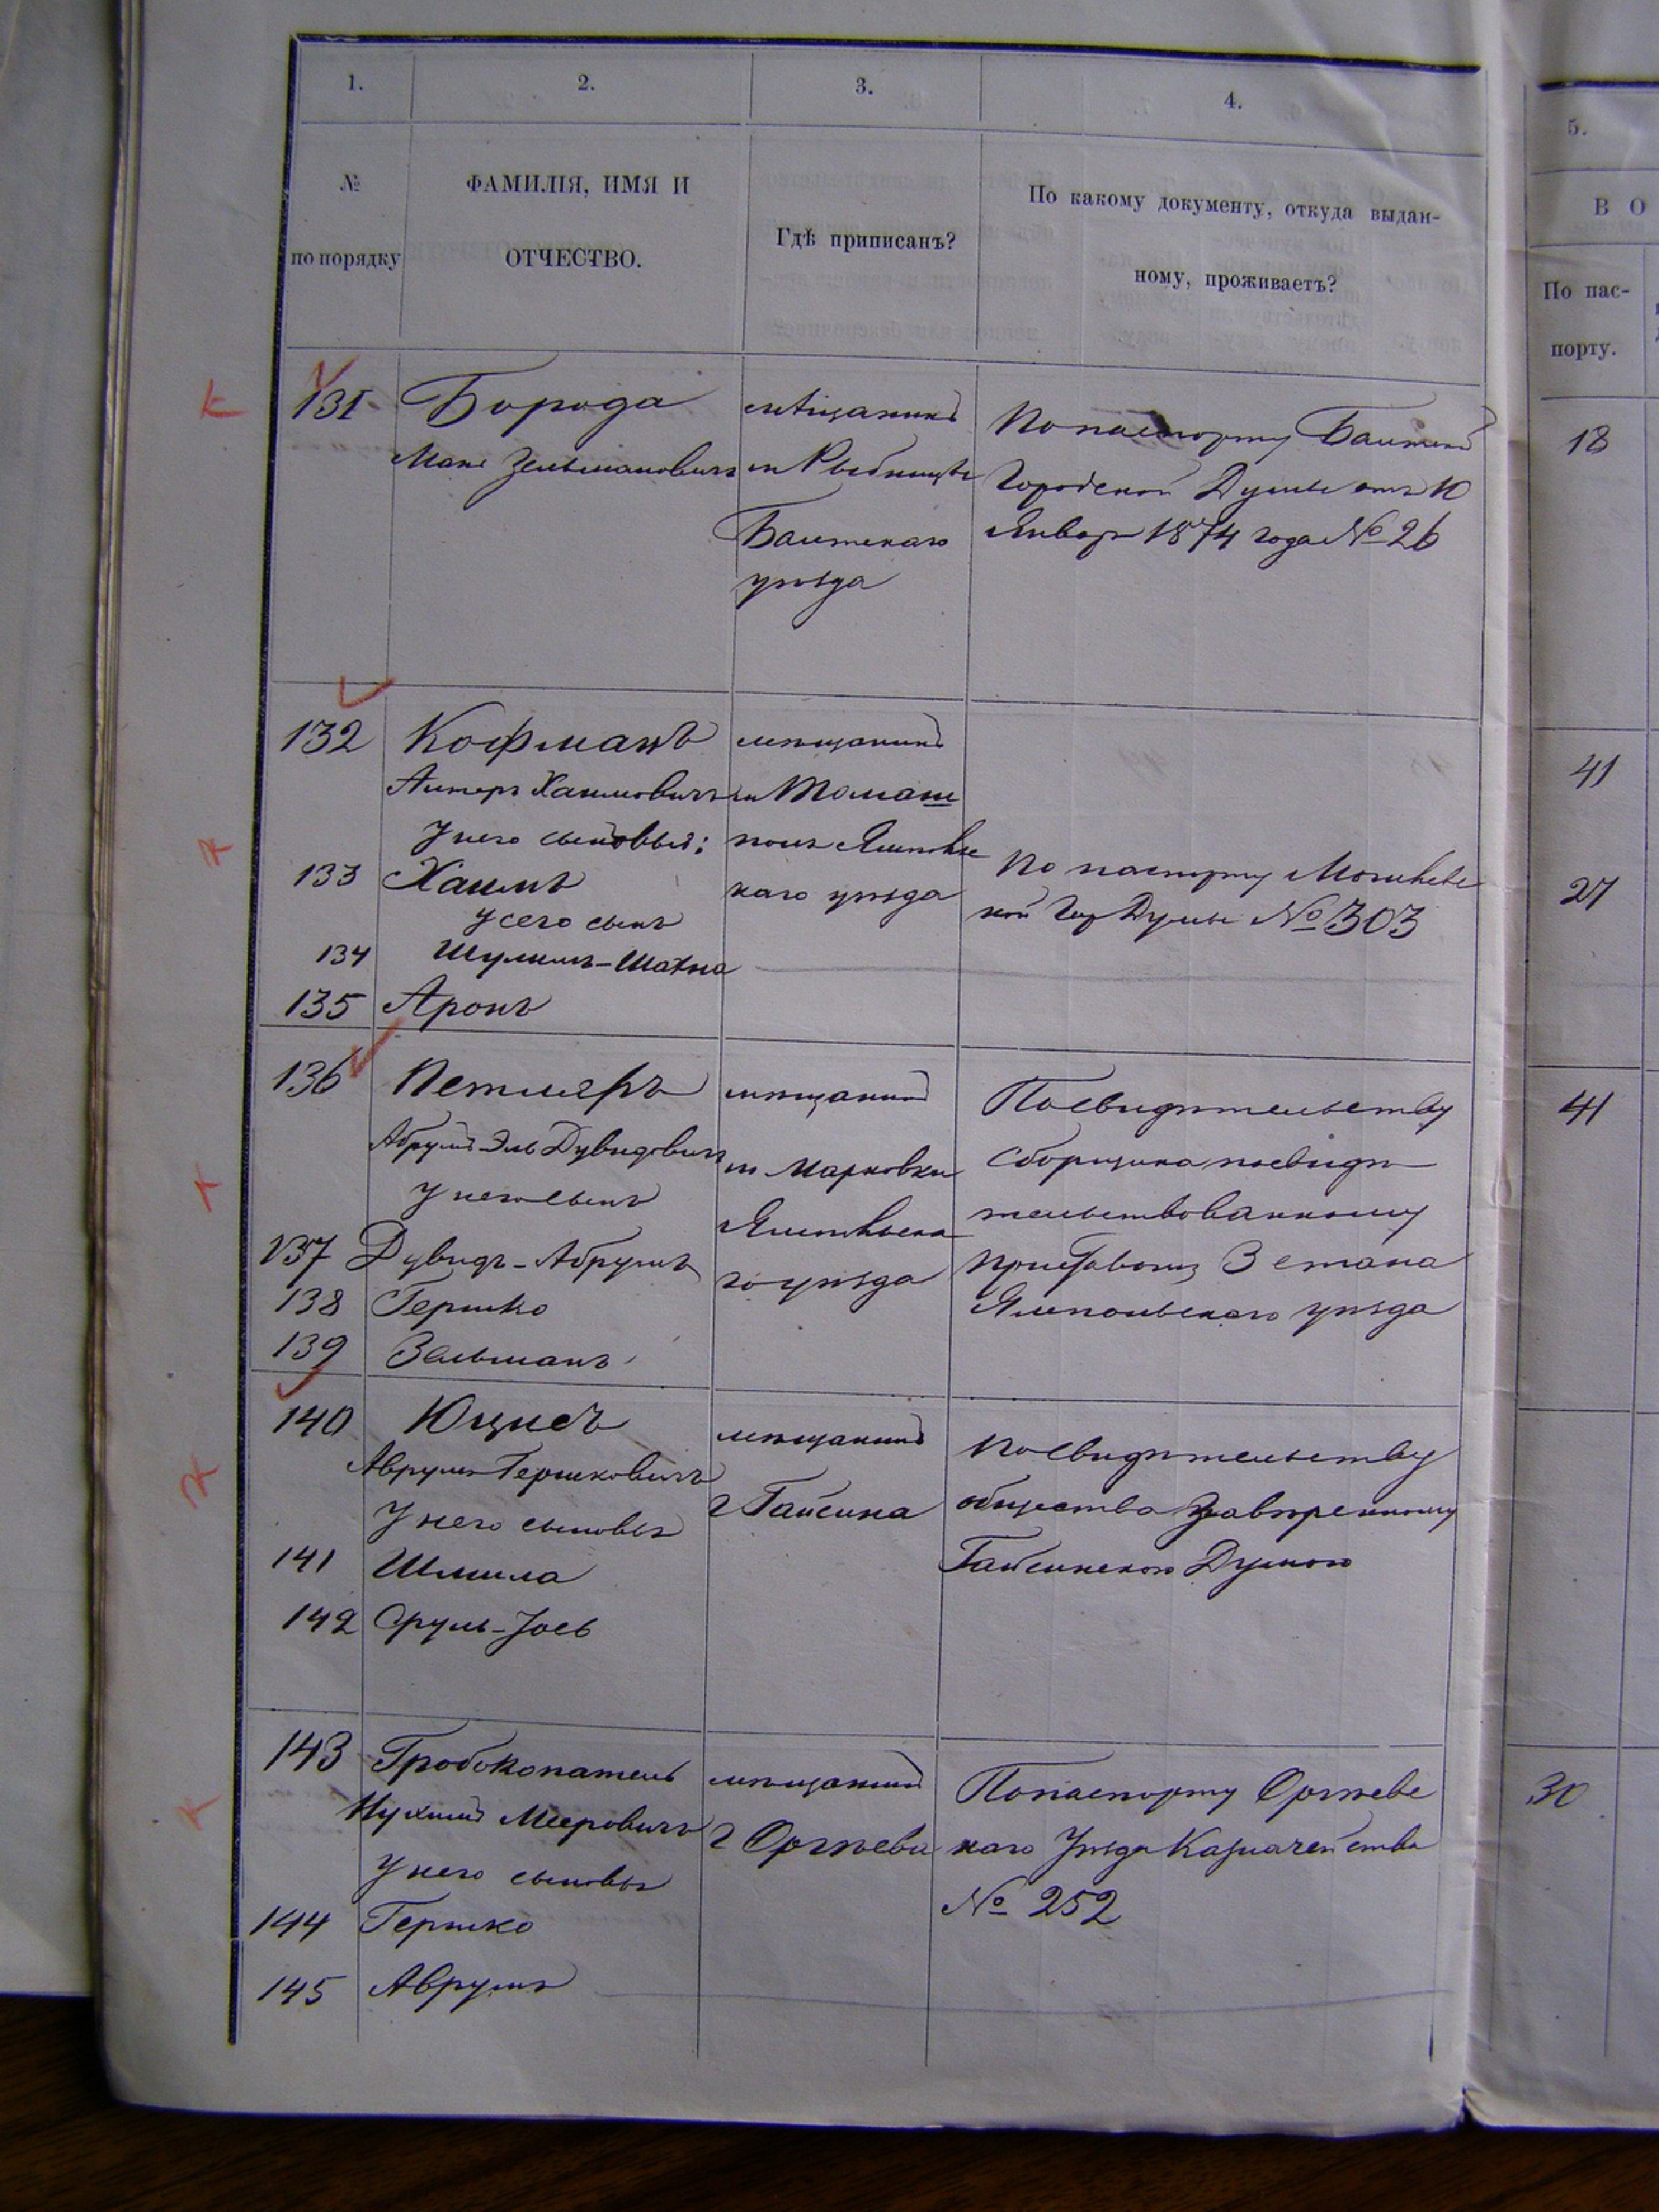 1.
2.
3.
4.
5.
№
по порядку
ФАМИЛІЯ, ИМЯ И
ОТЧЕСТВО.
Гдѣ приписанъ?
По какому документу, откуда выдан-
ному, проживаетъ?
В О
По пас-
порту.
131
Борода
Зельмановичъ
мѣщанинъ
м Рыбницы
Балтскаго
уѣзда
По паспорту Балтск
Городской Думы отъ 10
Января 1874 года № 26
18
132
Кофманъ
Хаимовичъ
У него сыновья:
133
Хаимъ
у сего сынъ
134
Шулимъ-Шахна
135
Аронъ
мѣщанинъ
м Томаш
поля Ямполс
каго уѣзда
По паспорту Могилевс
кой Гор Думы № 303
41
27
136
Петлярь
Абрумъ Эль Дувидовичъ
У него сынъ
137
Дувидъ-Абрумъ
138
Гершко
139
Зельманъ
мѣщанинъ
м Марковки
Ямпольска
го уѣзда
По свидѣтельству
сборщика по свидѣ
тельствованному
приставомъ 3 стана
Ямпольскаго уѣзда
41
140
Юцисъ
Аврумъ Гершковичъ
У него сыновья
141
Шмила
142
Сруль-Іось
мѣщанинъ
г Гайсина
По свидѣтельству
общества завѣренному
Гайсинскою Думою
143
Гробокопатель
Нухимъ Мееровичъ
У него сыновья
144
Гершко
145
Аврумъ
мѣщанинъ
г Оргѣева
По паспорту Оргѣевс
каго Уѣзда Казначейства
№ 252
30